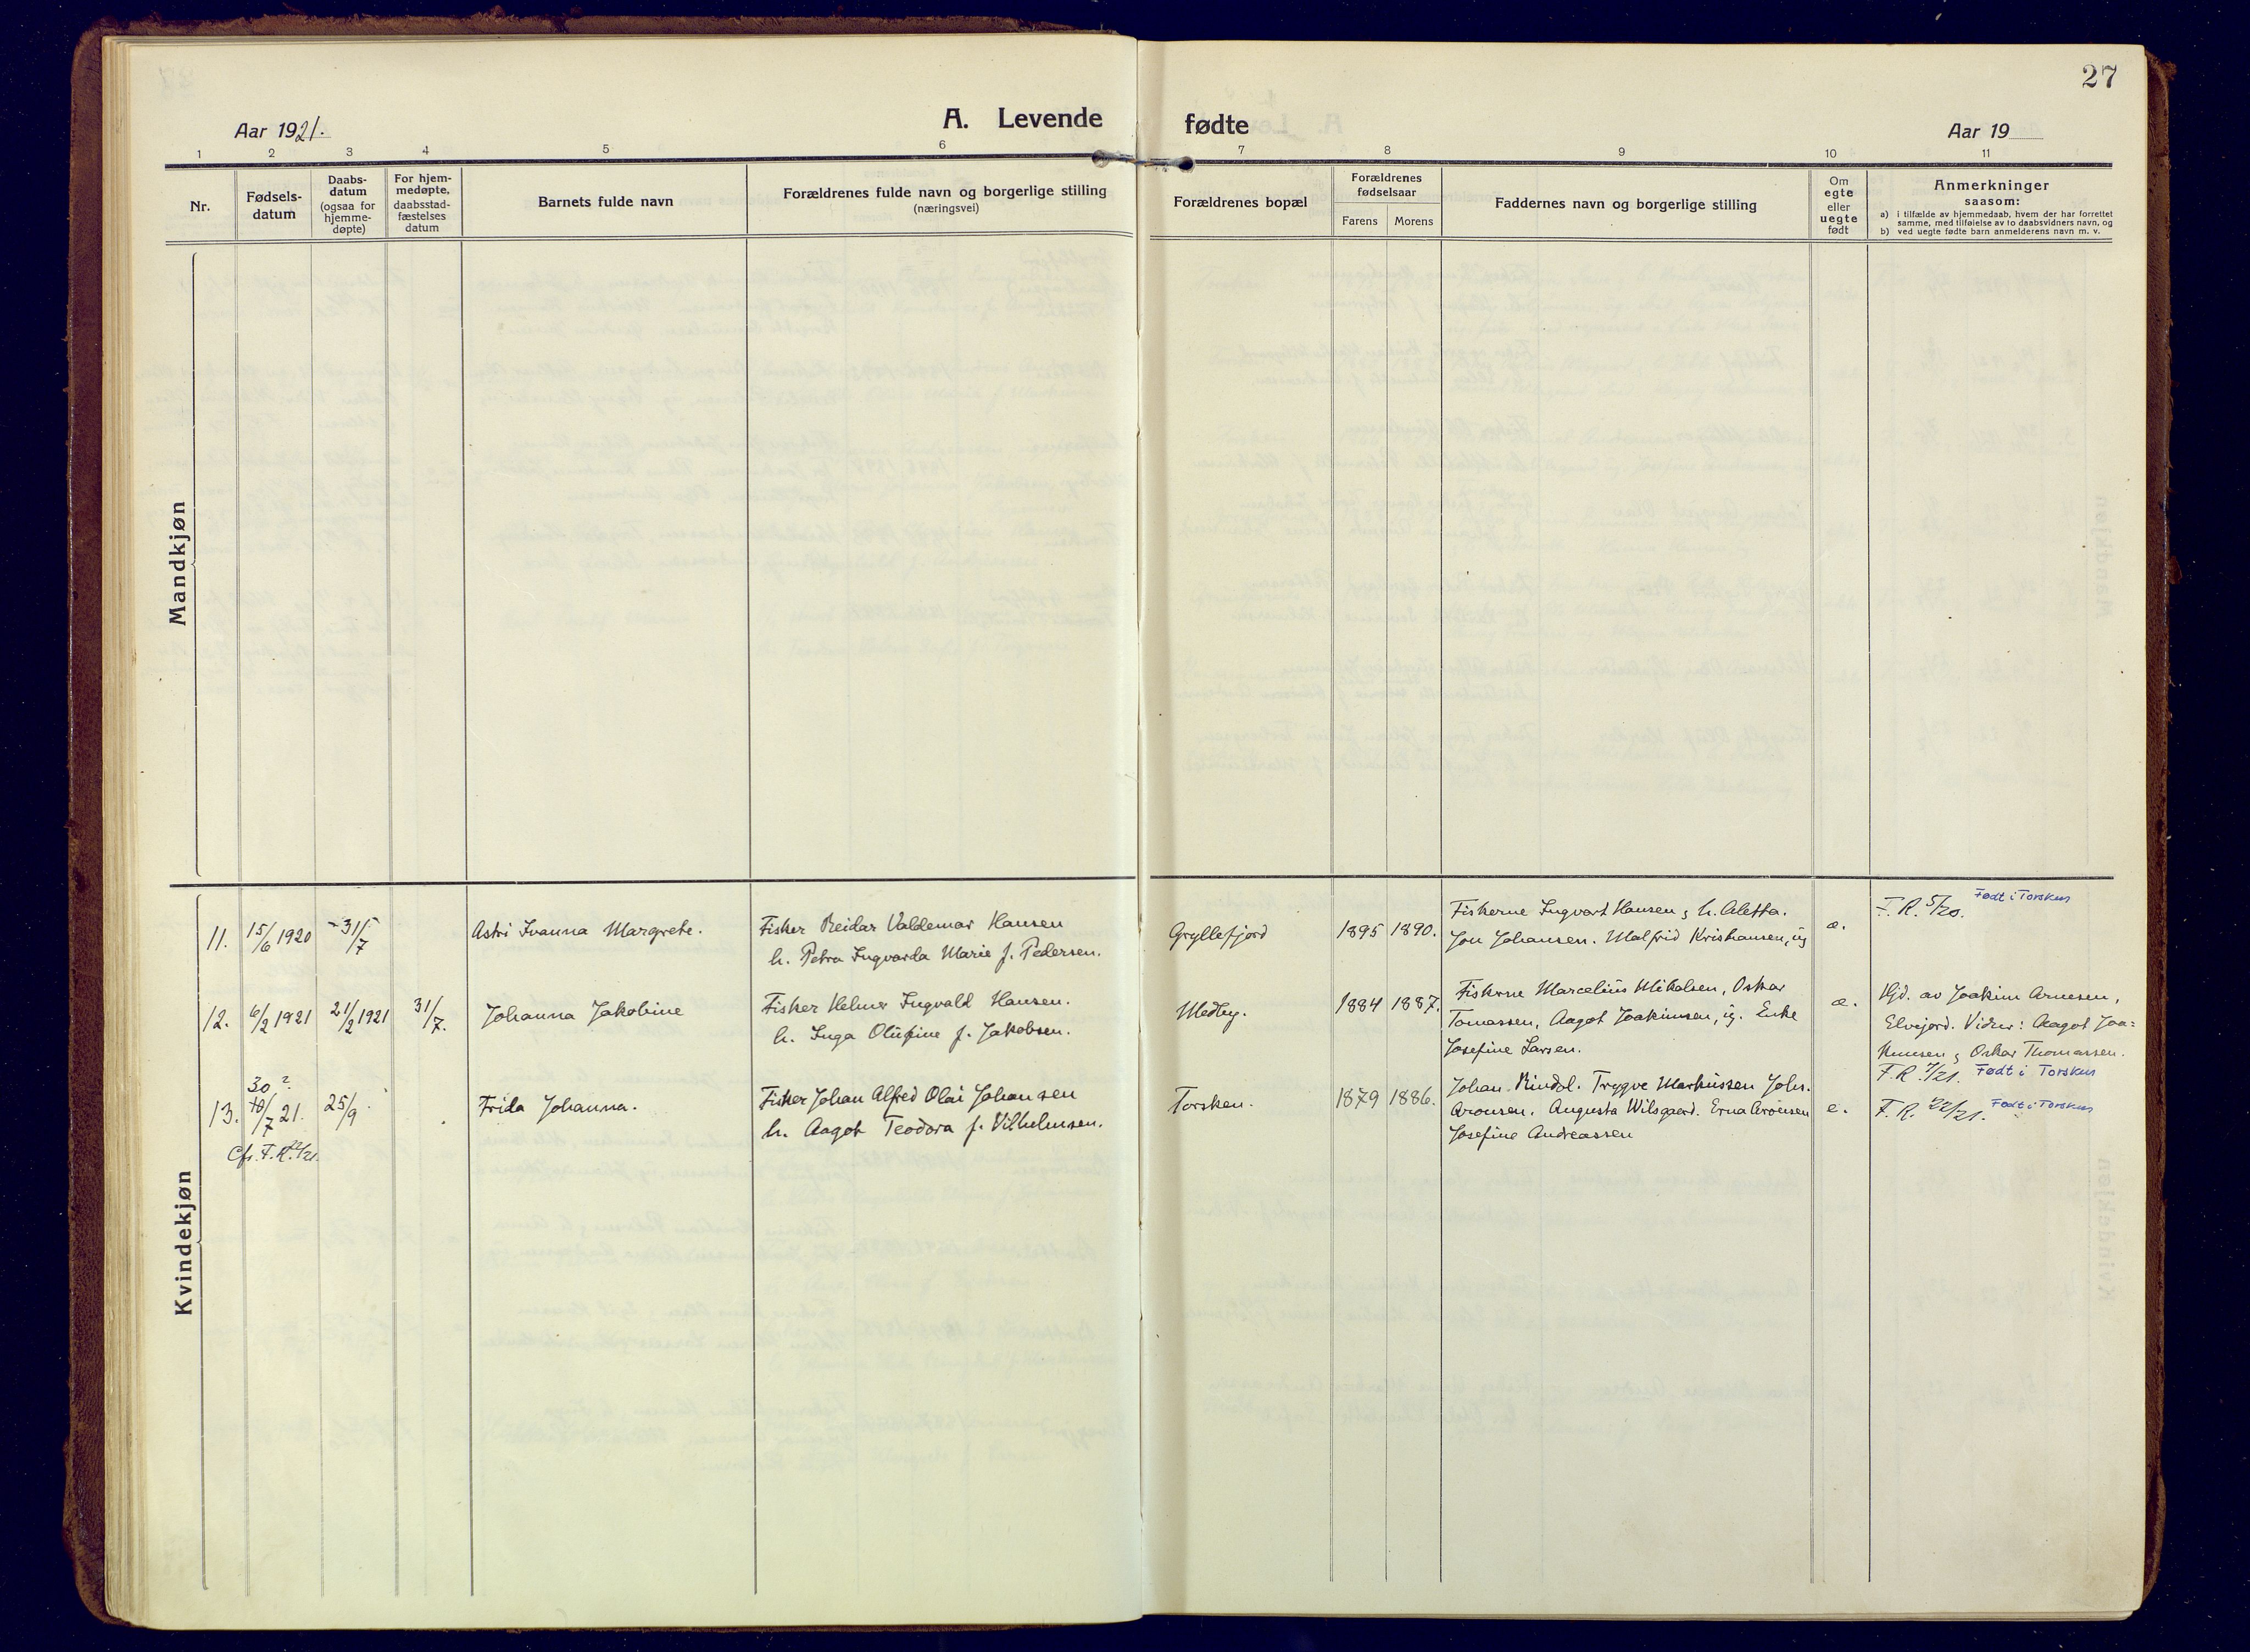 27
Aar 1921.
A. Levende
fødte
Aar 19
1 2 3 4 5 6 7 8 9 10 11
Nr.
Fødsels-
datum
Daabs-
datum
(ogsaa for
hjemme-
døpte)
For hjem-
medøpte,
daabsstad-
fæstelses
datum
Barnets fulde navn
Forældrenes fulde navn og borgerlige stilling
(næringsvei)
Forældrenes bopæl
Forældrenes
fødselsaar
Farens Morens
Faddernes navn og borgerlige stilling
Om
egte
eller
uegte
født
Anmerkninger
saasom:
a) i tilfælde av hjemmedaab, hvem der har forrettet
samme, med tilføielse av to daabsvidners navn, og
b) ved uegte fødte barn anmelderens navn m. v.
Mandkjøn
Kvindekjøn
11.
15/6 1920
31/7
Astri Ivanna Margrete.
Fisker Reidar Valdemar Hansen
h. Petra Ingvarda Marie f. Pedersen.
Gryllefjord
1895 1890.
Fiskerne Ingvart Hansen, h. Aletta.
Jon Johansen. Malfrid Kristiansen, ig
e.
F. R. 5/20. Født i Torsken
12.
6/2 1921
21/2 1921
31/7.
Johanna Jakobine
Fisker Helmer Ingvald Hansen.
h. Inga Olufine f. Jakobsen.
Medby.
1884 1887.
Fiskerne Marcelius Mikalsen, Oskar
Tomassen, Aagot Joakimsen, ig. Enke
Josefine Larsen.
e.
Hjd. av Joakim Arnesen,
Elvejord. Vidner: Aagot Joa=
kimsen, Oskar Thomassen.
F. R. 7/21. Født i Torsken
13.
30 ?
10/7 21.
Cfr. F. R. 22/21.
25/9
Frida Johanna.
Fisker Johan Alfred Olai Johansen
h. Aagot Teodora f. Vilhelmsen.
Torsken.
1879 1886.
Johan Rindal. Trygve Markussen Johs.
Aronsen. Augusta Wilsgaard. Erna Aronsen
Josefine Andreassen
e.
F. R. 22/21. Født i Torsken